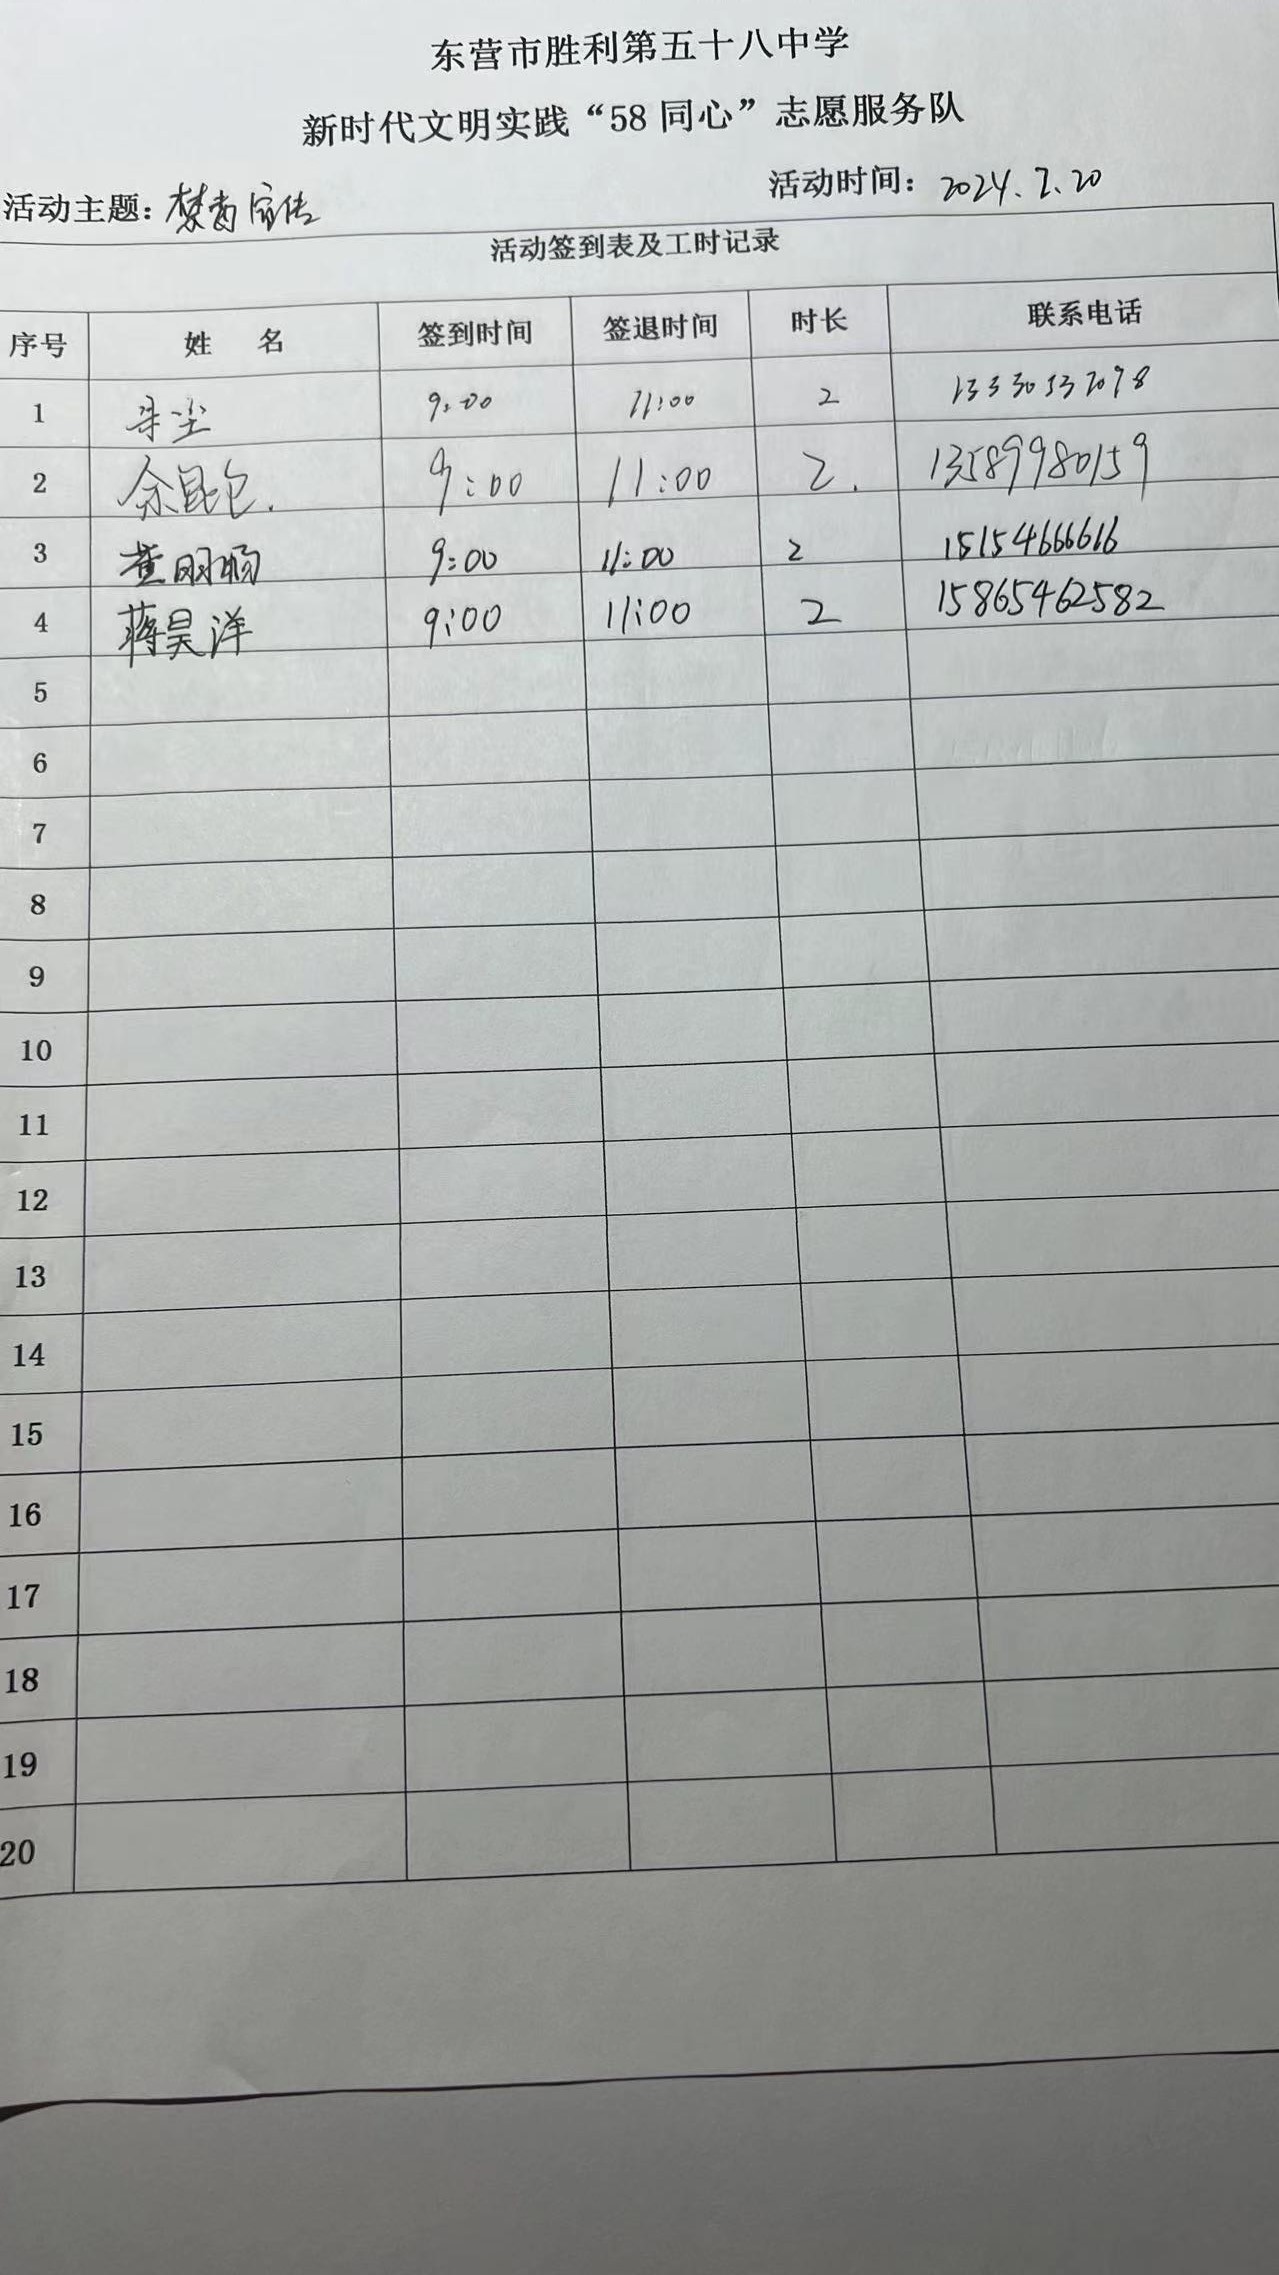 东营市胜利第五十八中学
新时代文明实践“58同心”志愿服务队
活动主题：禁毒宣传 活动时间：2024.7.20
活动签到表及工时记录
序号 姓 名 签到时间 签退时间 时长 联系电话
1 9:00 11:00 2
2 余昆仑. 9:00 11:00 2. 13589980159
3 黄明旸 9:00 11:00 2 15154666616
4 蒋昊洋 9:00 11:00 2 15865462582
5
6
7
8
9
10
11
12
13
14
15
16
17
18
19
20